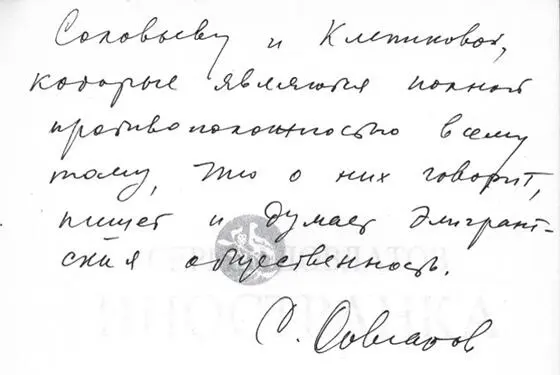 Соловьеву и Клепиковой,
которые являются полной
противоположностью всему
тому, что о них говорит,
пишет и думает эмигрант-
ская общественность.
С. Довлатов
ИНОСТРАНКА